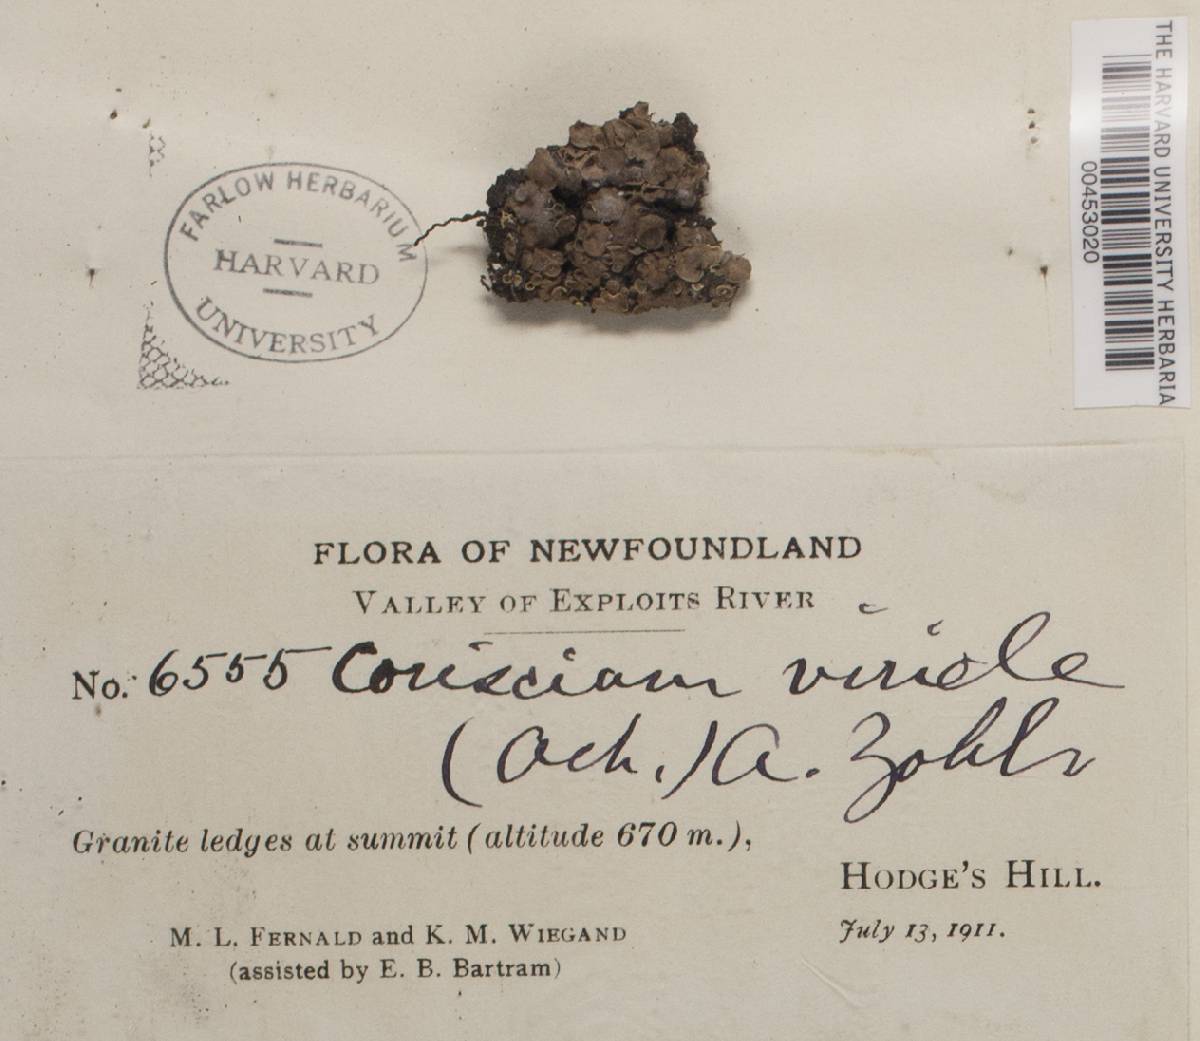 FARLOW HERBARIUM
HARVARD
UNIVERSITY
THE HARVARD UNIVERSITY HERBARIA
00453020
FLORA OF NEWFOUNDLAND
VALLEY OF EXPLOITS RIVER
No. 6555 Coriscium viride
(Ach.) A. Zahlbr
Granite ledges at summit (altitude 670 m.),
HODGE'S HILL.
M. L. FERNALD and K. M. WIEGAND
July 13, 1911.
(assisted by E. B. Bartram)